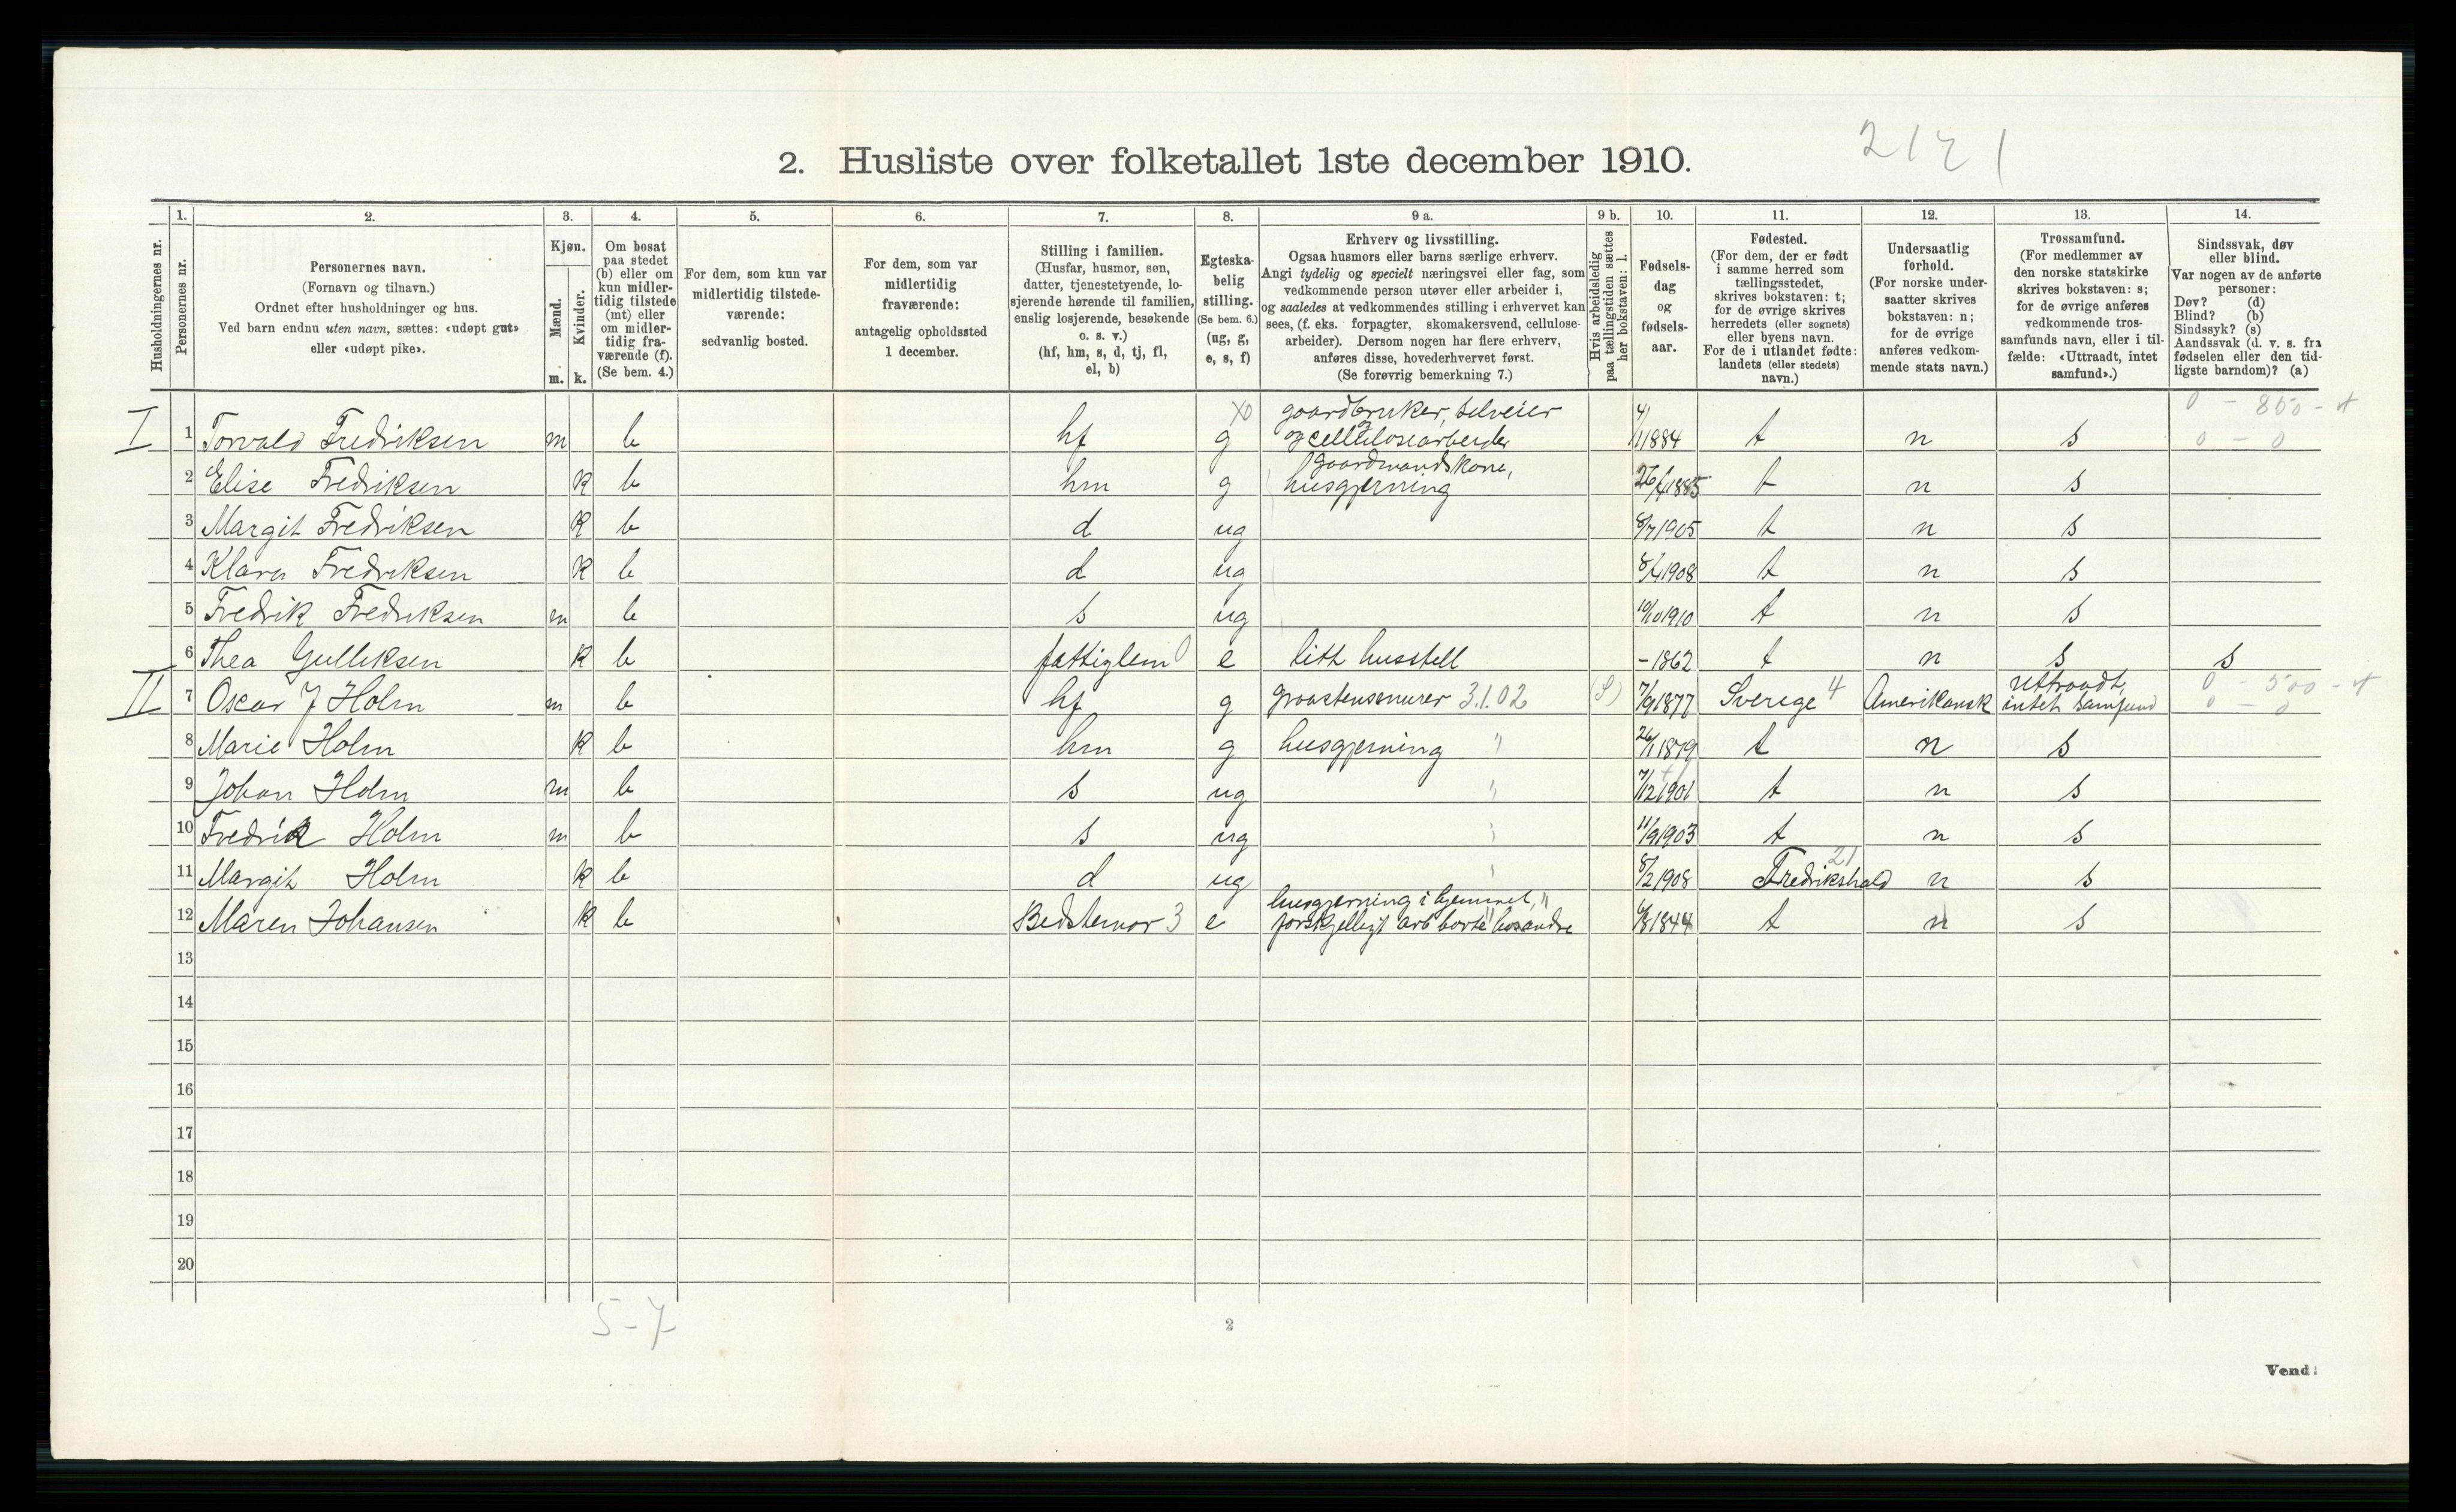 2. Husliste over folketallet 1ste december 1910.
1. 2. 3. 4. 5. 6. 7. 8. 9 a. 9 b. 10. 11. 12. 13. 14.
Husholdningernes nr.
Personernes nr.
Personernes navn.
(Fornavn og tilnavn.)
Ordnet efter husholdninger og hus.
Ved barn endnu uten navn, sættes: «udøpt gut»
eller «udøpt pike».
Kjøn.
Mænd.
Kvinder.
m. k.
Om bosat
paa stedet
(b) eller om
kun midler-
tidig tilstede
(mt) eller
om midler-
tidig fra-
værende (f).
(Se bem. 4.)
For dem, som kun var
midlertidig tilstede-
værende:
sedvanlig bosted.
For dem, som var
midlertidig
fraværende:
antagelig opholdssted
1 december.
Stilling i familien.
(Husfar, husmor, søn,
datter, tjenestetyende, lo-
sjerende hørende til familien,
enslig losjerende, besøkende
o. s. v.)
(hf, hm, s, d, tj, fl,
el, b)
Egteska-
belig
stilling.
(Se bem. 6.)
(ug, g,
e, s, f)
Erhverv og livsstilling.
Ogsaa husmors eller barns særlige erhverv.
Angi tydelig og specielt næringsvei eller fag, som
vedkommende person utøver eller arbeider i,
og saaledes at vedkommendes stilling i erhvervet kan
sees, (f. eks. forpagter, skomakersvend, cellulose-
arbeider). Dersom nogen har flere erhverv,
anføres disse, hovederhvervet først.
(Se forøvrig bemerkning 7.)
Hvis arbeidsledig
paa tællingstiden sættes
her bokstaven: l.
Fødsels-
dag
og
fødsels-
aar.
Fødested.
(For dem, der er født
i samme herred som
tællingsstedet,
skrives bokstaven: t;
for de øvrige skrives
herredets (eller sognets)
eller byens navn.
For de i utlandet fødte:
landets (eller stedets)
navn.)
Undersaatlig
forhold.
(For norske under-
saatter skrives
bokstaven: n;
for de øvrige
anføres vedkom-
mende stats navn.)
Trossamfund.
(For medlemmer av
den norske statskirke
skrives bokstaven: s;
for de øvrige anføres
vedkommende tros-
samfunds navn, eller i til-
fælde: «Uttraadt, intet
samfund».)
Sindssvak, døv
eller blind.
Var nogen av de anførte
personer:
Døv? (d)
Blind? (b)
Sindssyk? (s)
Aandssvak (d. v. s. fra
fødselen eller den tid-
ligste barndom)? (a)
gaardbruker, selveier 0 - 850 -
I 1 Torvald Fredriksen m b hf g og cellulosearbeider 4/1 1884 t n s 0 - 0
gaardmandskone,
2 Elise Fredriksen k b hm g husgjerning 26/4 1885 t n s
3 Margit Fredriksen k b d ug 8/7 1905 t n s
4 Klara Fredriksen k b d ug 8/4 1908 t n s
5 Fredrik Fredriksen m b s ug 10/10 1910 t n s
6 Thea Gulliksen k b fattiglem e litt husstell - 1862 t n s s
uttraadt, 0 - 500 -
II 7 Oscar J Holm m b hf g graastensmurer 3.1.02 (S) 7/9 1877 Sverige 4 Amerikansk intet samfund 0 - 0
8 Marie Holm k b hm g husgjerning " 26/1 1879 t n s
9 Johan Holm m b s ug " 7/12 1901 t n s
10 Fredrik Holm m b s ug " 11/9 1903 t n s
21
11 Margit Holm k b d ug " 8/2 1908 Fredrikshald n s
husgjerning i hjemmet, "
12 Maren Johansen k b Bedstemor 3 e forskjelligt arb borte hos andre 6/8 1844 t n s
13
14
15
16
17
18
19
20
5-7
2
Vend!